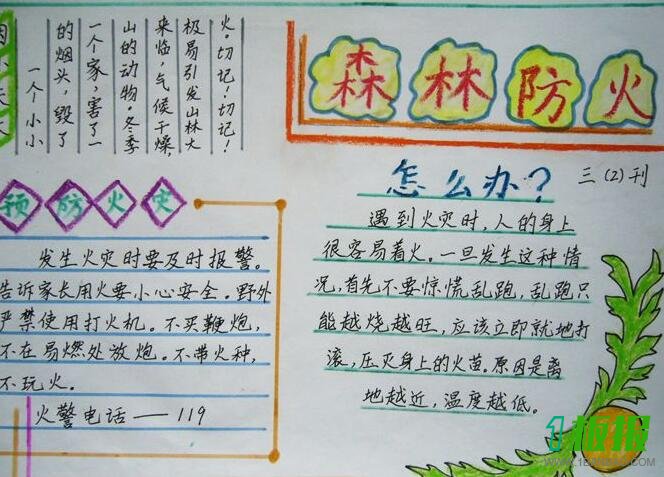 因小失大
一个小小
的烟头，毁了
一个家，害了一
山的动物。冬季
来临，气候干燥，
极易引发山林大
火。切记！切记！
森林防火
预防火灾
发生火灾时要及时报警。
告诉家长用火要小心安全。野外
严禁使用打火机。不买鞭炮，
不在易燃处放炮。不带火种，
不玩火。
火警电话——119
怎么办？
三（2）刊
遇到火灾时，人的身上
很容易着火。一旦发生这种情
况，首先不要惊慌乱跑，乱跑只
能越烧越旺，应该立即就地打
滚，压灭身上的火苗。原因是离
地越近，温度越低。
1板报